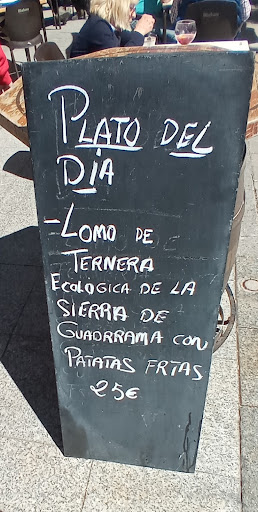 PLATO DEL
DÍA
-LOMO DE
TERNERA
ECOLÓGICA DE LA
SIERRA DE
GUADRRAMA CON
PATATAS FRTAS
25€